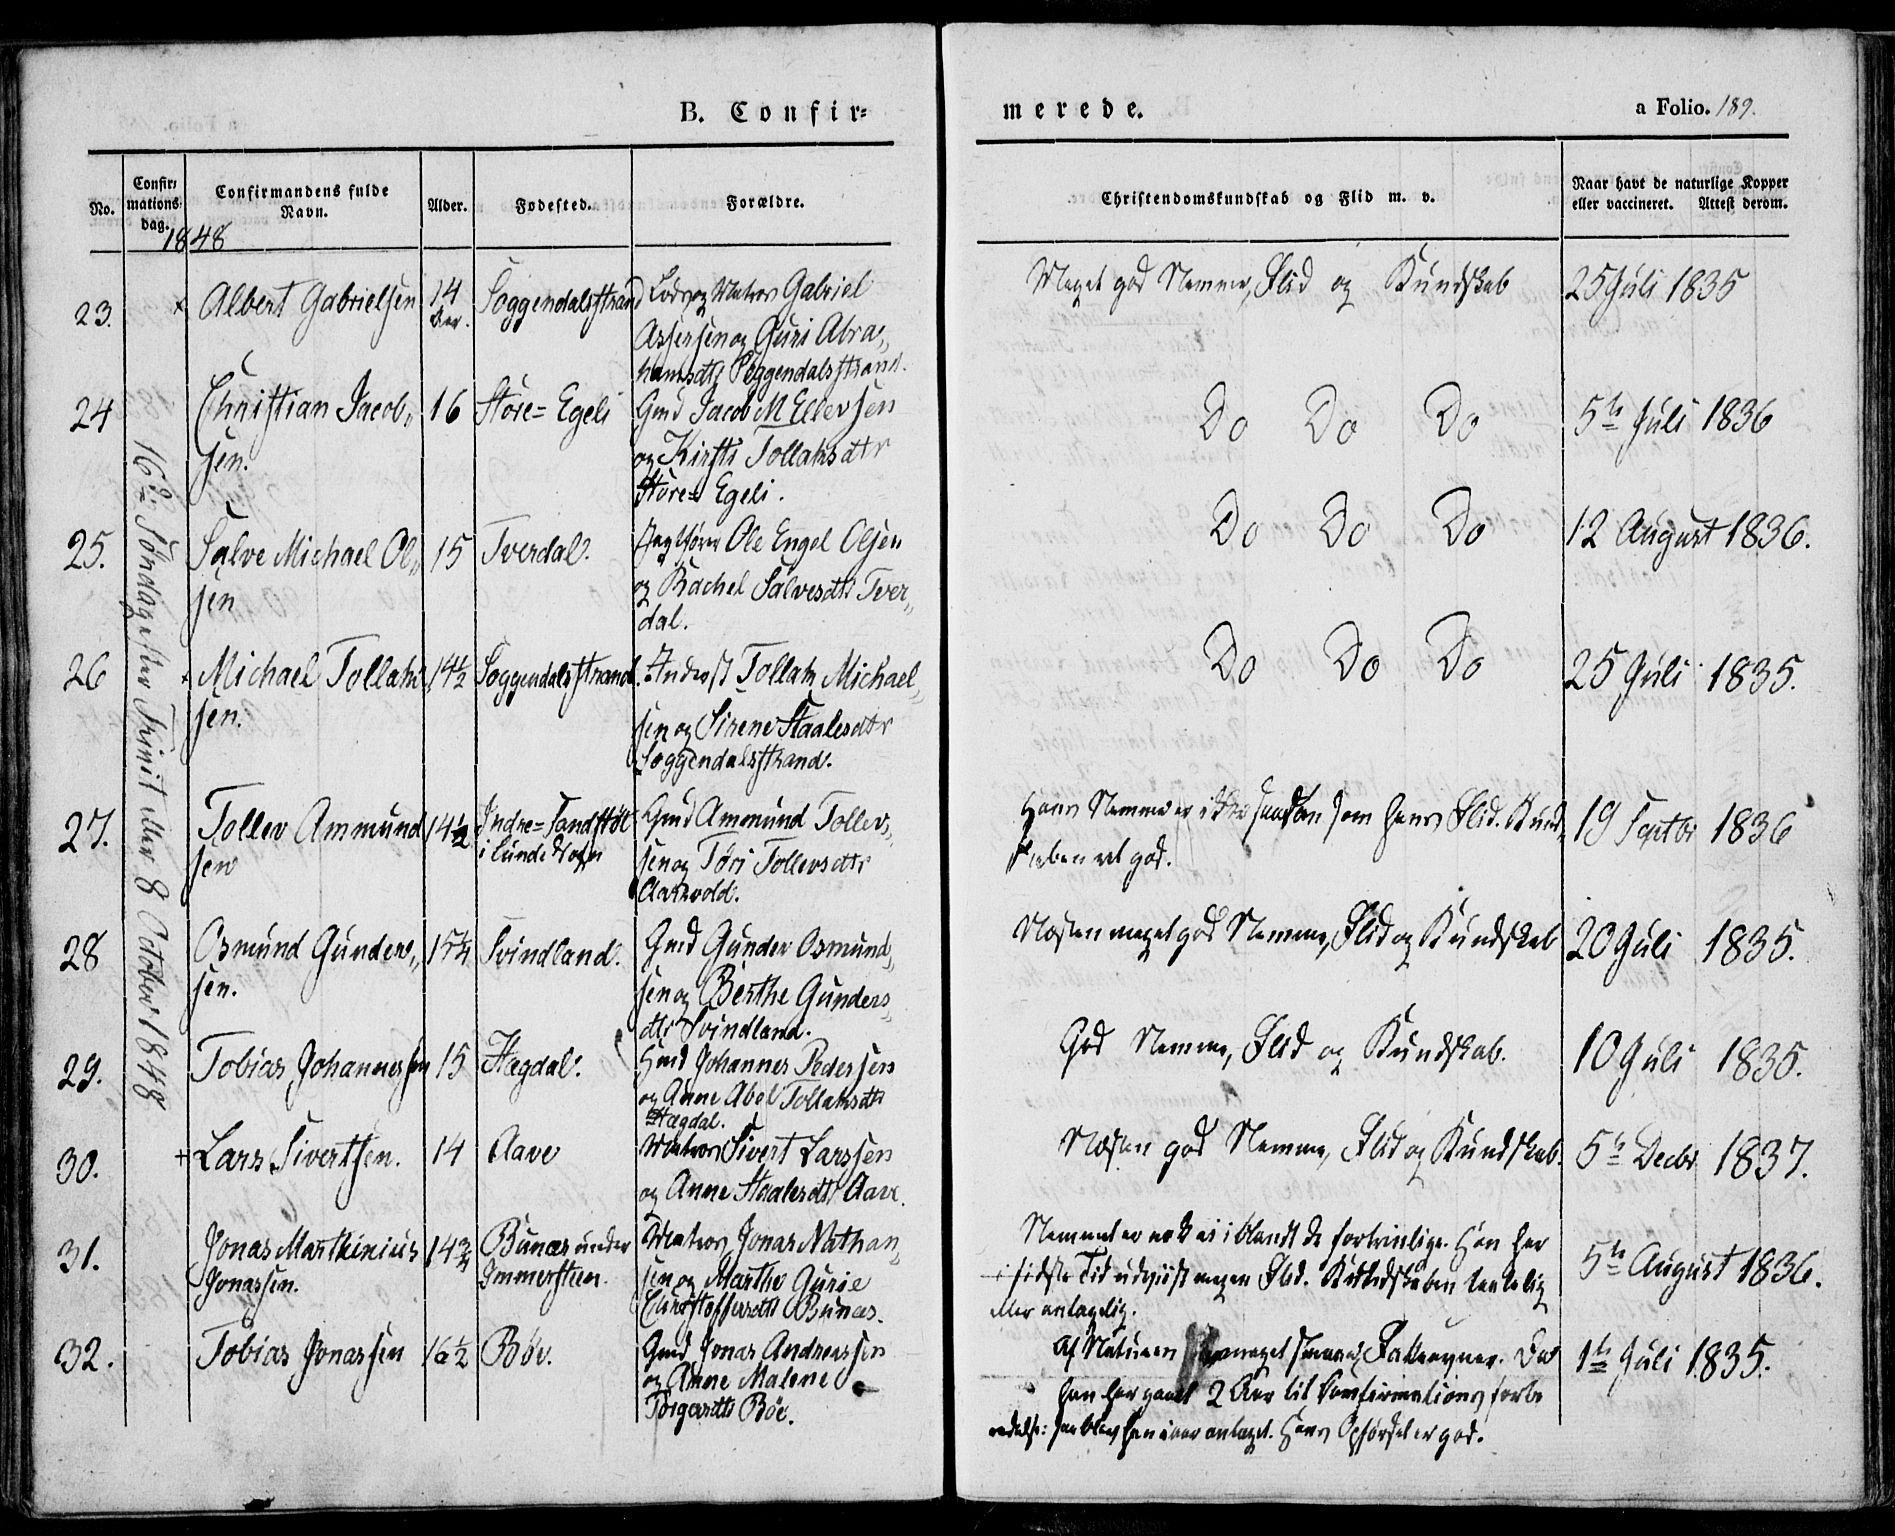 B. Confir=
merede.
a Folio. 189.
No.
Confir=
mations=
dag.
Confirmandens fulde
Navn.
Alder.
Fødested.
Forældre.
Christendomskundskab og Flid m. v.
Naar havt de naturlige Kopper
eller vaccineret. Attest derom.
1848
16de Søndag efter Trinit eller 8 October 1848
23.
Albert Gabrielsen
14
Aar.
Soggendalsstrand
Lods og Matros Gabriel
Assersen og Guri Abra„
hamsdtr Soggendalsstrand.
Meget god Nemme, Flid og Kundskab
25 Juli 1835
24
Christian Jacob„
sen.
16
Store= Egeli
Gmd Jacob M Ellevsen
og Kirsti Tollaksdtr
Store= Egeli.
Do Do Do
5te Juli 1836
25.
Salve Michael Ol„
sen
15
Tverdal.
Ole Engel Olsen
og Rachel Salvesdtr Tver„
dal.
Do Do Do
12 August 1836.
26
Michael Tollaks
sen.
14½
Soggendalsstrand.
Tollak Michael„
sen og Sirene Staalesdtr
Soggendalsstrand.
Do Do Do
25 Juli 1835.
27.
Tollev Ammund
sen
14½
Indre=
i Lunde Sogn
Gmd Ammund Tollev„
sen og Tøri Tollevsdtr
Aarrvold.
Hans Nemme er ikke saadan som hans Flid. Kund„
skaben ret god.
19 Septbr 1836
28
Osmund Gunder„
sen.
15½
Svindland.
Gmd Gunder Osmund„
sen og Berthe Gunders„
dtr Svindland.
Næsten meget god Nemme, Flid og Kundskab
20 Juli 1835.
29.
Tobias Johannessen
15
Hægdal.
Gmd Johannes Pedersen
og Anne Abel Tollaksdtr
Hægdal.
God Nemme, Flid og Kundskab.
10 Juli 1835.
30.
+ Lars Sivertsen.
14
Aave
Matros Sivert Larssen
og Anne Staalesdtr Aave.
Næsten god Nemme, Flid og Kundskab.
5te Decbr 1837.
31.
Jonas Marthinius
Jonassen.
14¾
Bunæs under
Immersteen.
Matros Jonas Nathan„
sen og Marthe Gurie
Christoffersdtr Bunæs.
Nemmet er nok ei iblandt de fortrinlige. Han har
i sidste Tid udviist megen Flid. Kundskaben taalelig
eller antagelig.
5te August 1836.
32.
Tobias Jonassen
16½
Bøe.
Gmd Jonas Andreassen
og Anne Malene
Torgersdtr Bøe.
Af Naturen meget svage Fatteevner. Da
han har gaaet 2 Aar til Confirmations forbe
redelse: saa blev han iaar antaget. Hans Opførsel er god.
1te Juli 1835.